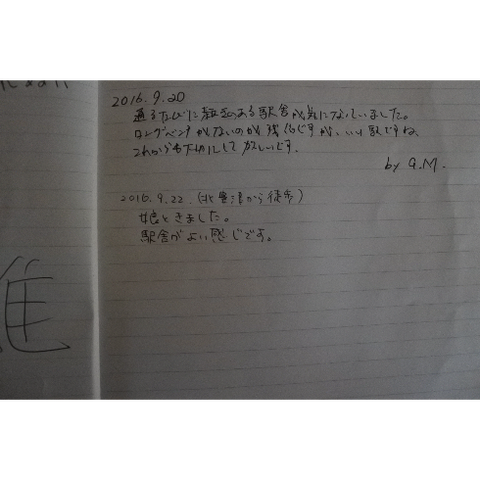 2016.9.20
通るたびに歴史のある駅舎が気になっていました。
ロングベンチがないのが残念ですが、いい駅ですね、
これからも大切にして欲しいです。
by a.M.
2016.9.22.(北豊津から徒歩)
娘ときました。
駅舎がよい感じです。